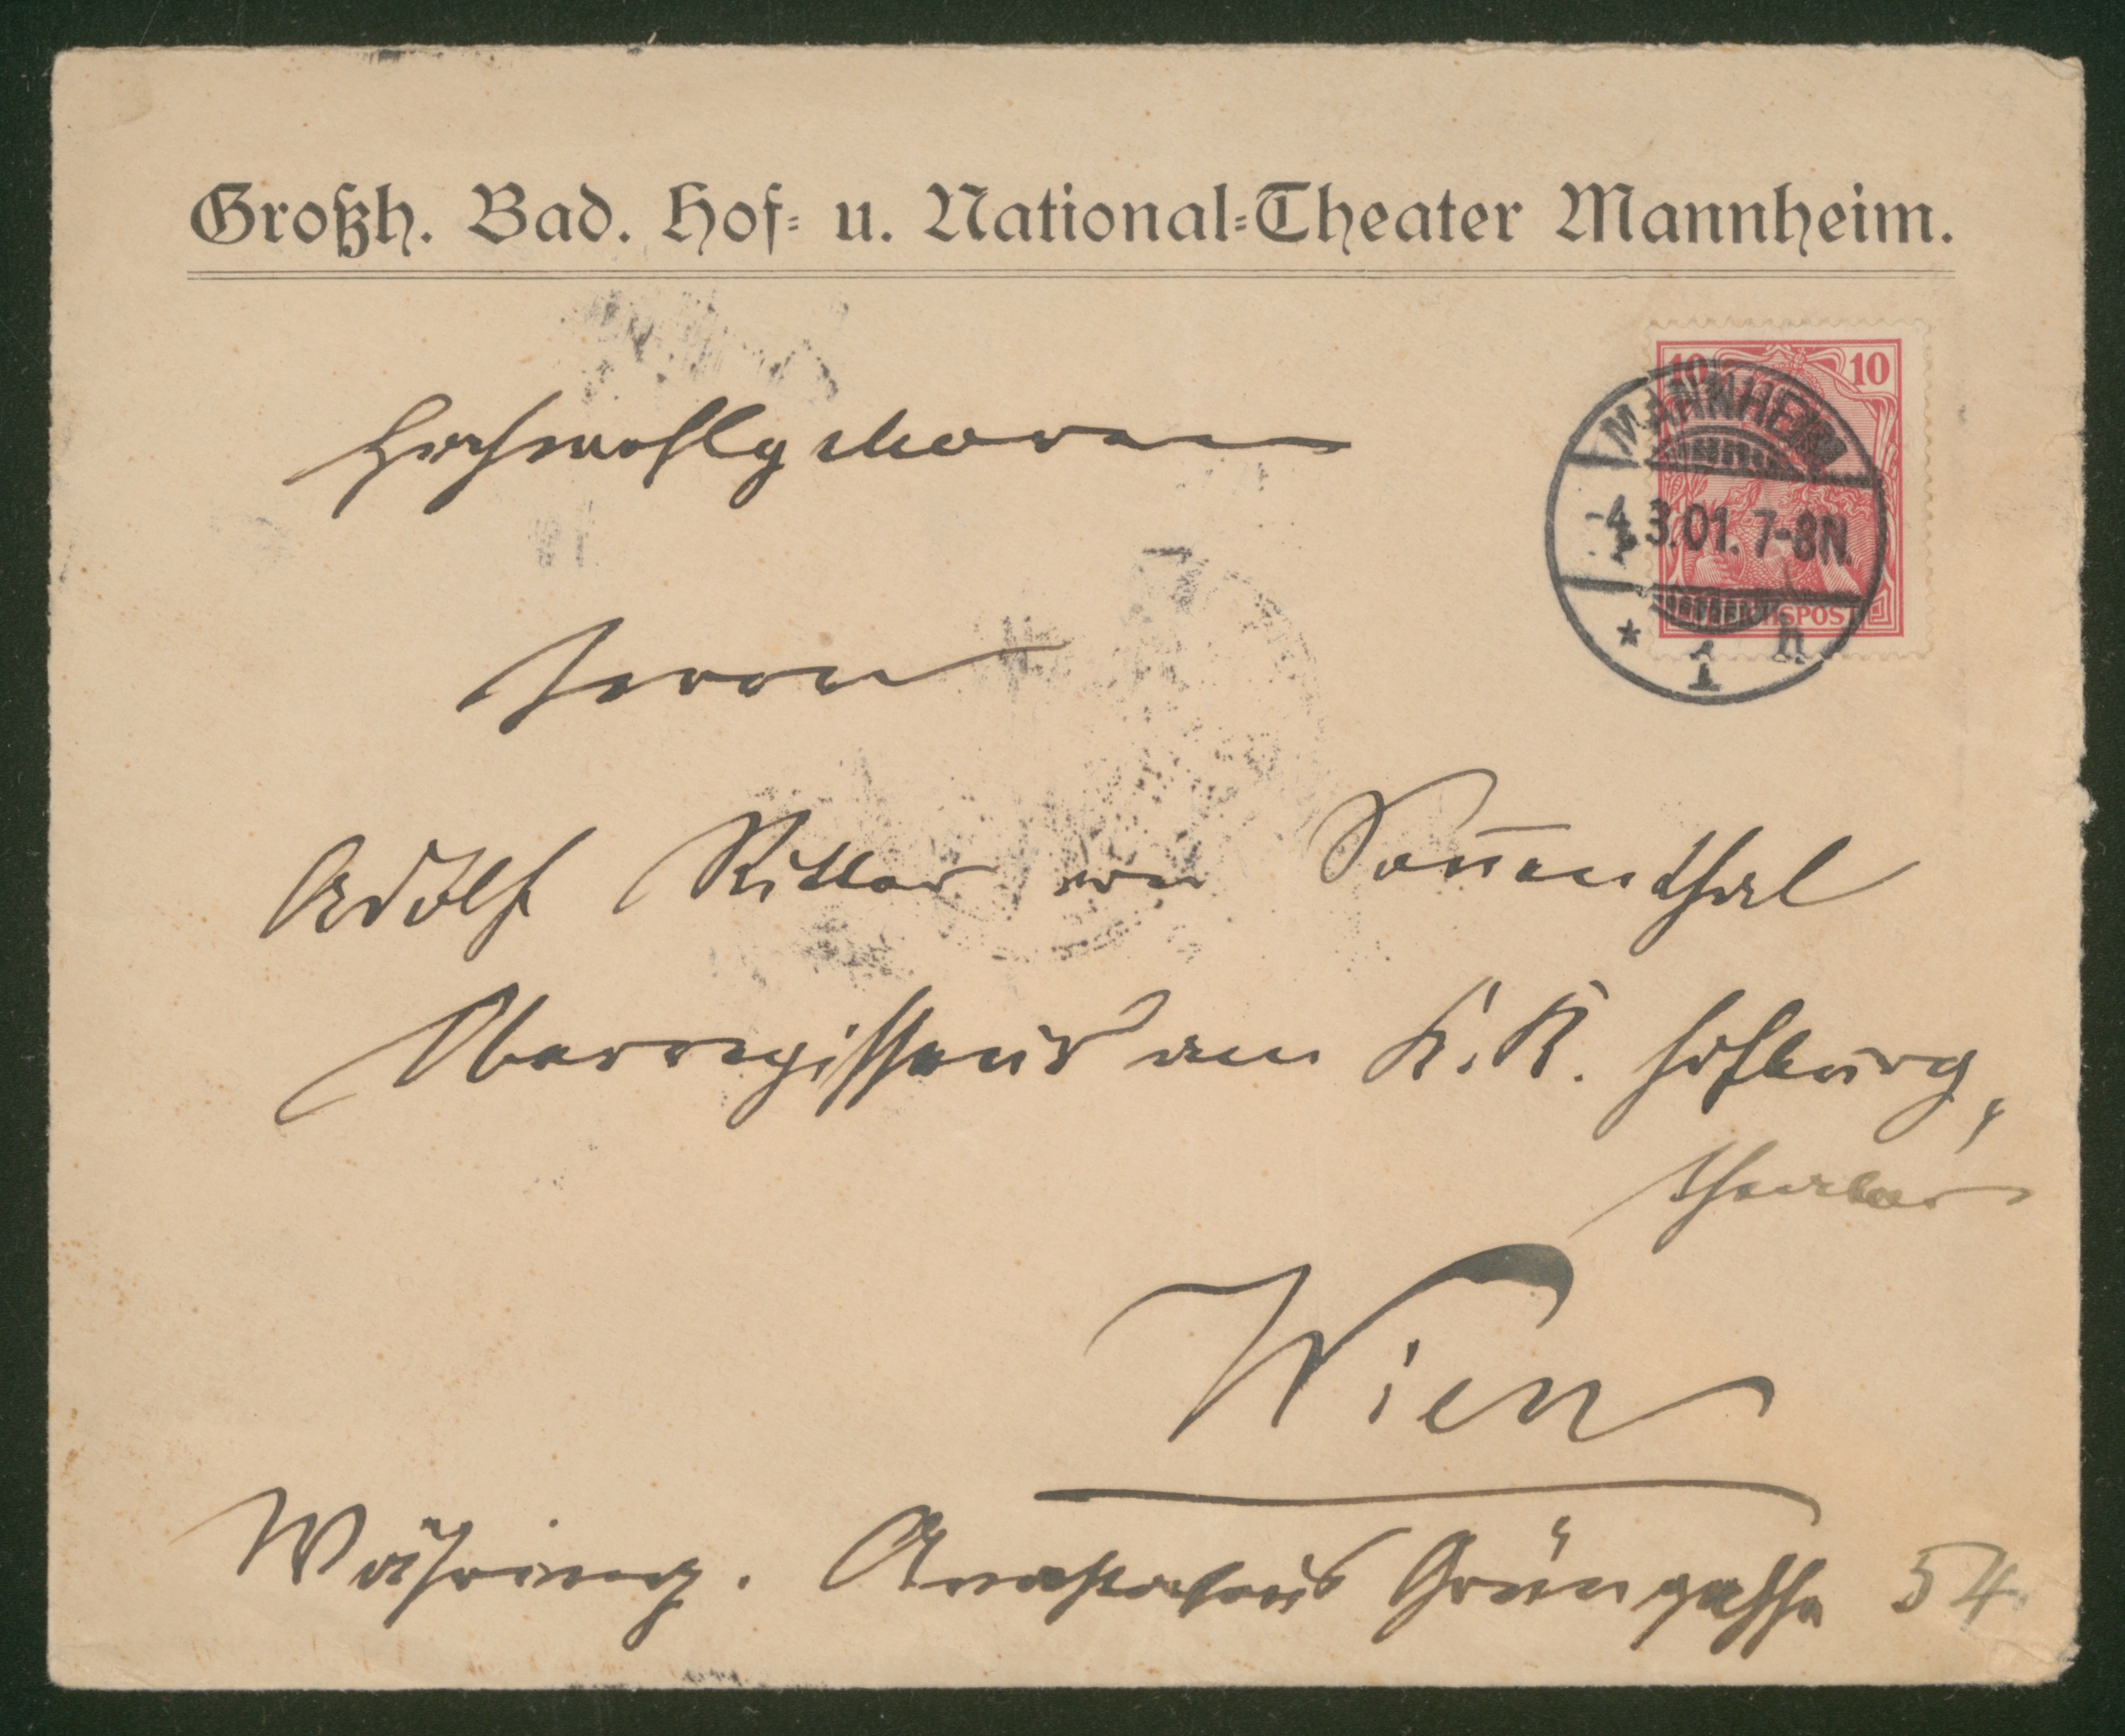 Großh. Bad. Hof- u. National-Theater Mannheim.
10 10
MANNHEIM
-4.3.01. 7-8N.
* 1 h
REICHSPOST
Hochwohlgeboren
Herrn
Adolf Ritter von Soñenthal
Oberregisseur am K. K. Hofburg,
theater
Wien
Währing. Anastasius Grüngasse 54.